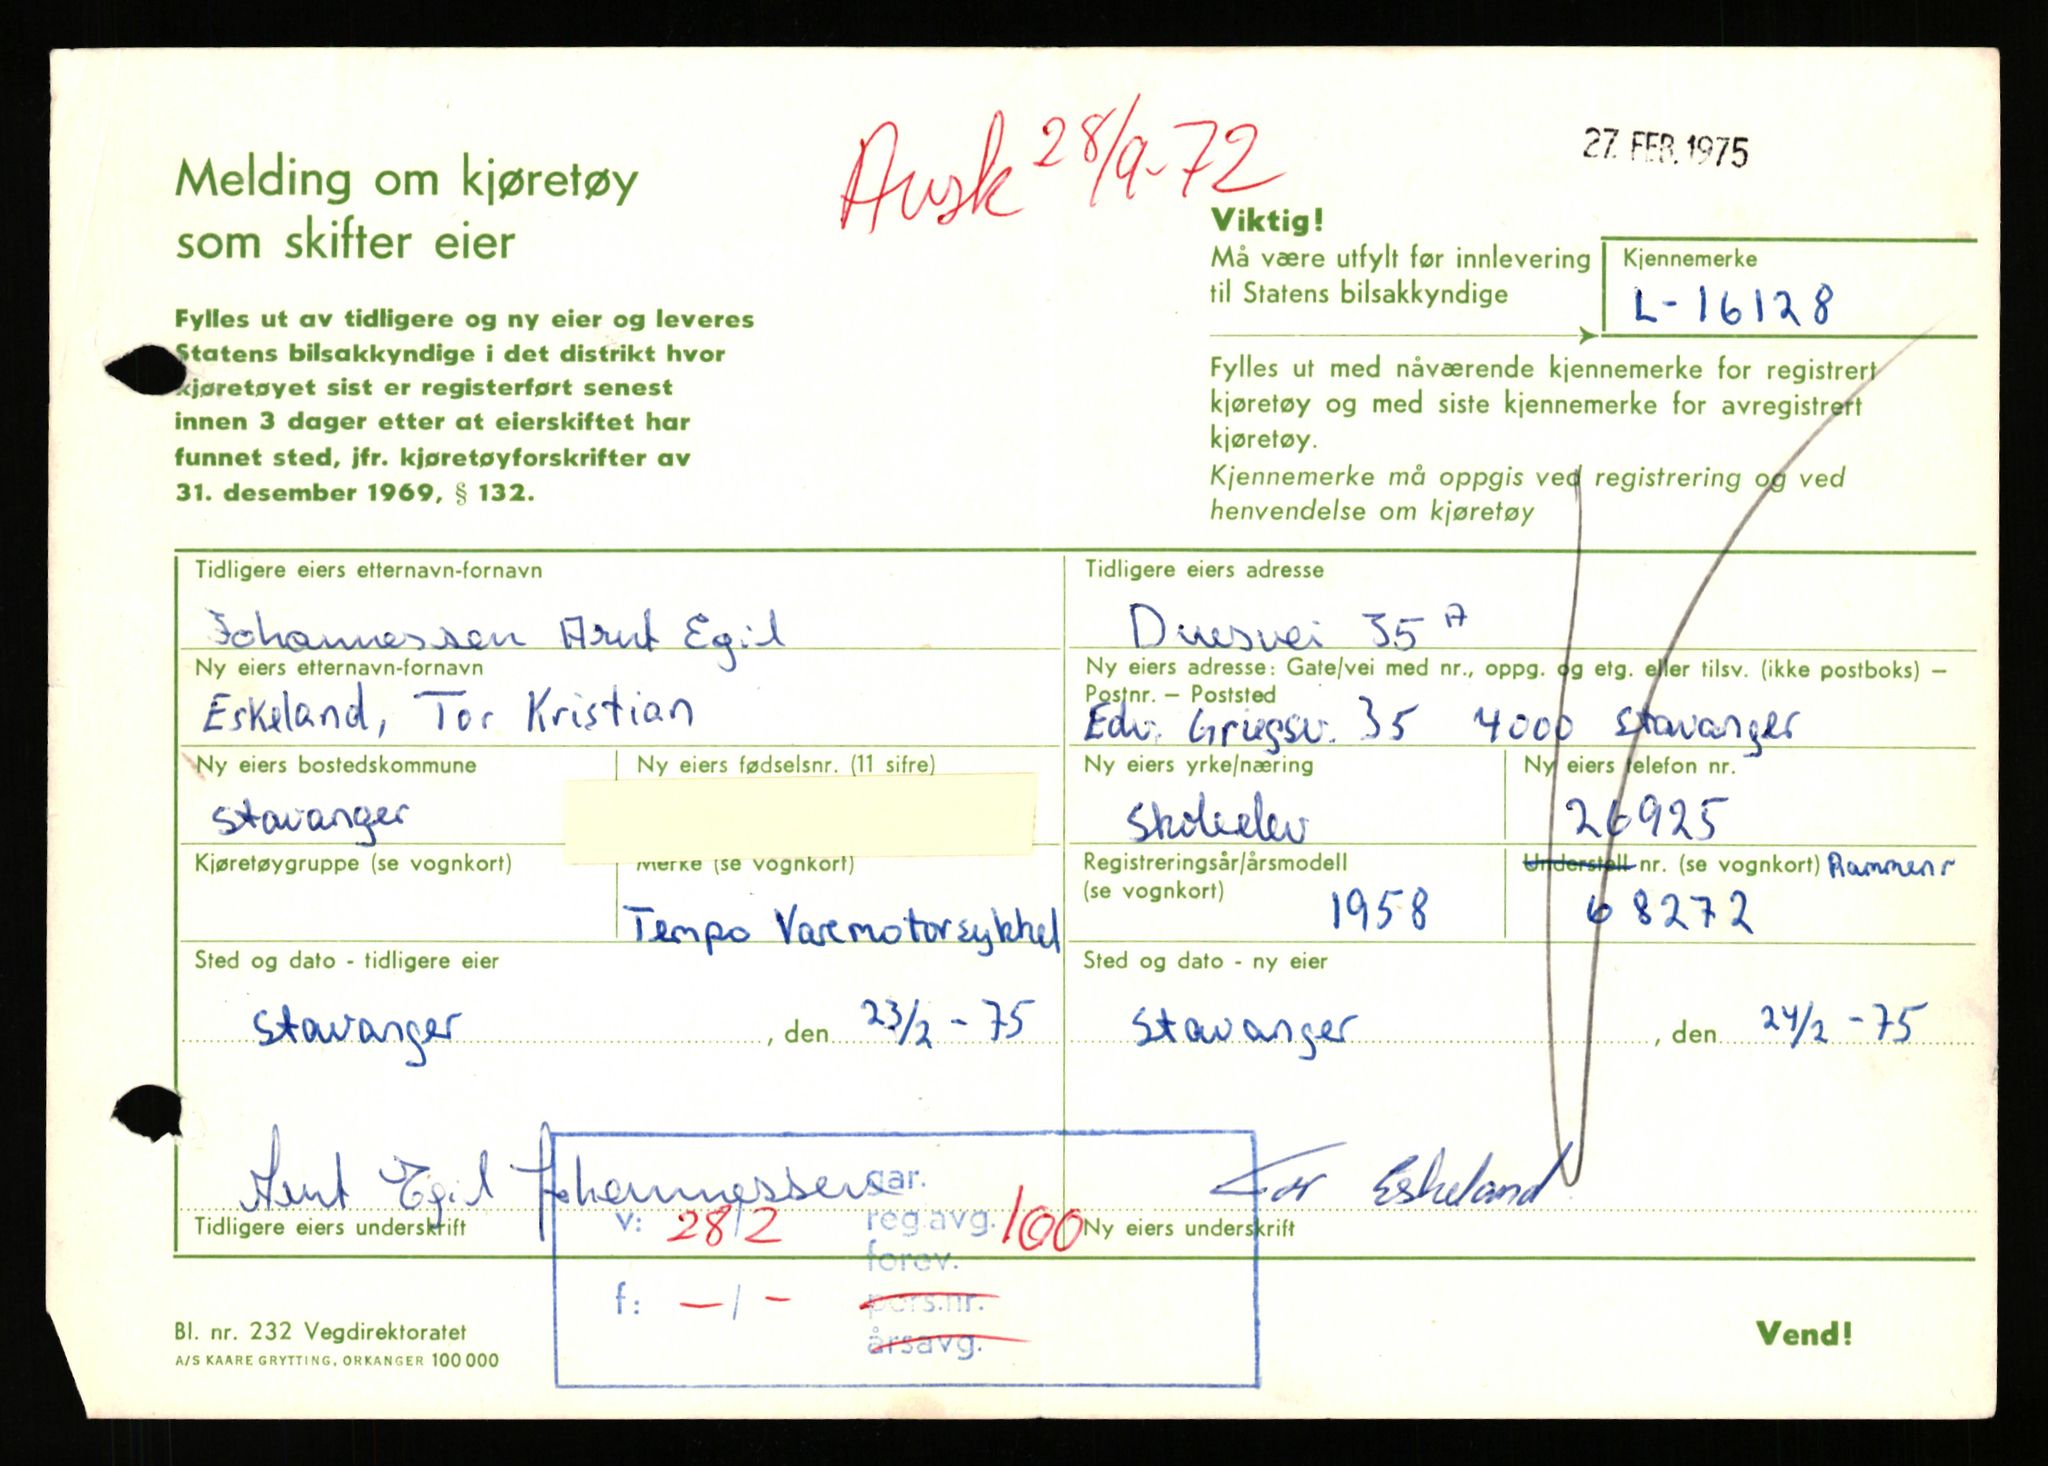 Melding om kjøretøy
som skifter eier
Avsk 28/9-72
27. FEB. 1975
Fylles ut av tidligere og ny eier og leveres
Statens bilsakkyndige i det distrikt hvor
kjøretøyet sist er registerført senest
innen 3 dager etter at eierskiftet har
funnet sted, jfr. kjøretøyforskrifter av
31. desember 1969, § 132.
Viktig!
Må være utfylt før innlevering
til Statens bilsakkyndige
Kjennemerke
L-16128
Fylles ut med nåværende kjennemerke for registrert
kjøretøy og med siste kjennemerke for avregistrert
kjøretøy.
Kjennemerke må oppgis ved registrering og ved
henvendelse om kjøretøy
Tidligere eiers etternavn-fornavn
Johannessen Arnt Egil
Tidligere eiers adresse
Duesvei 35 A
Ny eiers etternavn-fornavn
Eskeland, Tor Kristian
Ny eiers adresse: Gate/vei med nr., oppg. og etg. eller tilsv. (ikke postboks) –
Postnr. – Poststed
Edv. Griegsv. 35 4000 Stavanger
Ny eiers bostedskommune
Stavanger
Ny eiers fødselsnr. (11 sifre)
Ny eiers yrke/næring
Skoleelev
Ny eiers telefon nr.
26925
Kjøretøygruppe (se vognkort)
Merke (se vognkort)
Tempo Varemotorsykkel
Registreringsår/årsmodell
(se vognkort)
1958
Understell nr. (se vognkort) Rammenr
68272
Sted og dato - tidligere eier
Stavanger, den 23/2 - 75
Sted og dato - ny eier
Stavanger, den 24/2 - 75
Arnt Egil Johannessen
Tidligere eiers underskrift
Tor Eskeland
Ny eiers underskrift
gar.
v: 28/2
reg.avg. 100
forev.
f: -/-
pers.nr.
årsavg.
Bl. nr. 232 Vegdirektoratet
A/S KAARE GRYTTING, ORKANGER 100 000
Vend!